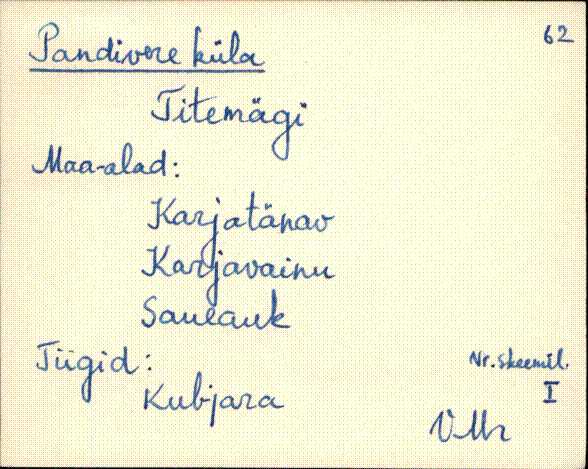 62
Pandivere küla
Titemägi
Maa-alad:
Karjatänav
Karjavainu
Saueauk
Tiigid:
Kubjara
Nr. skeemil.
I
VMr